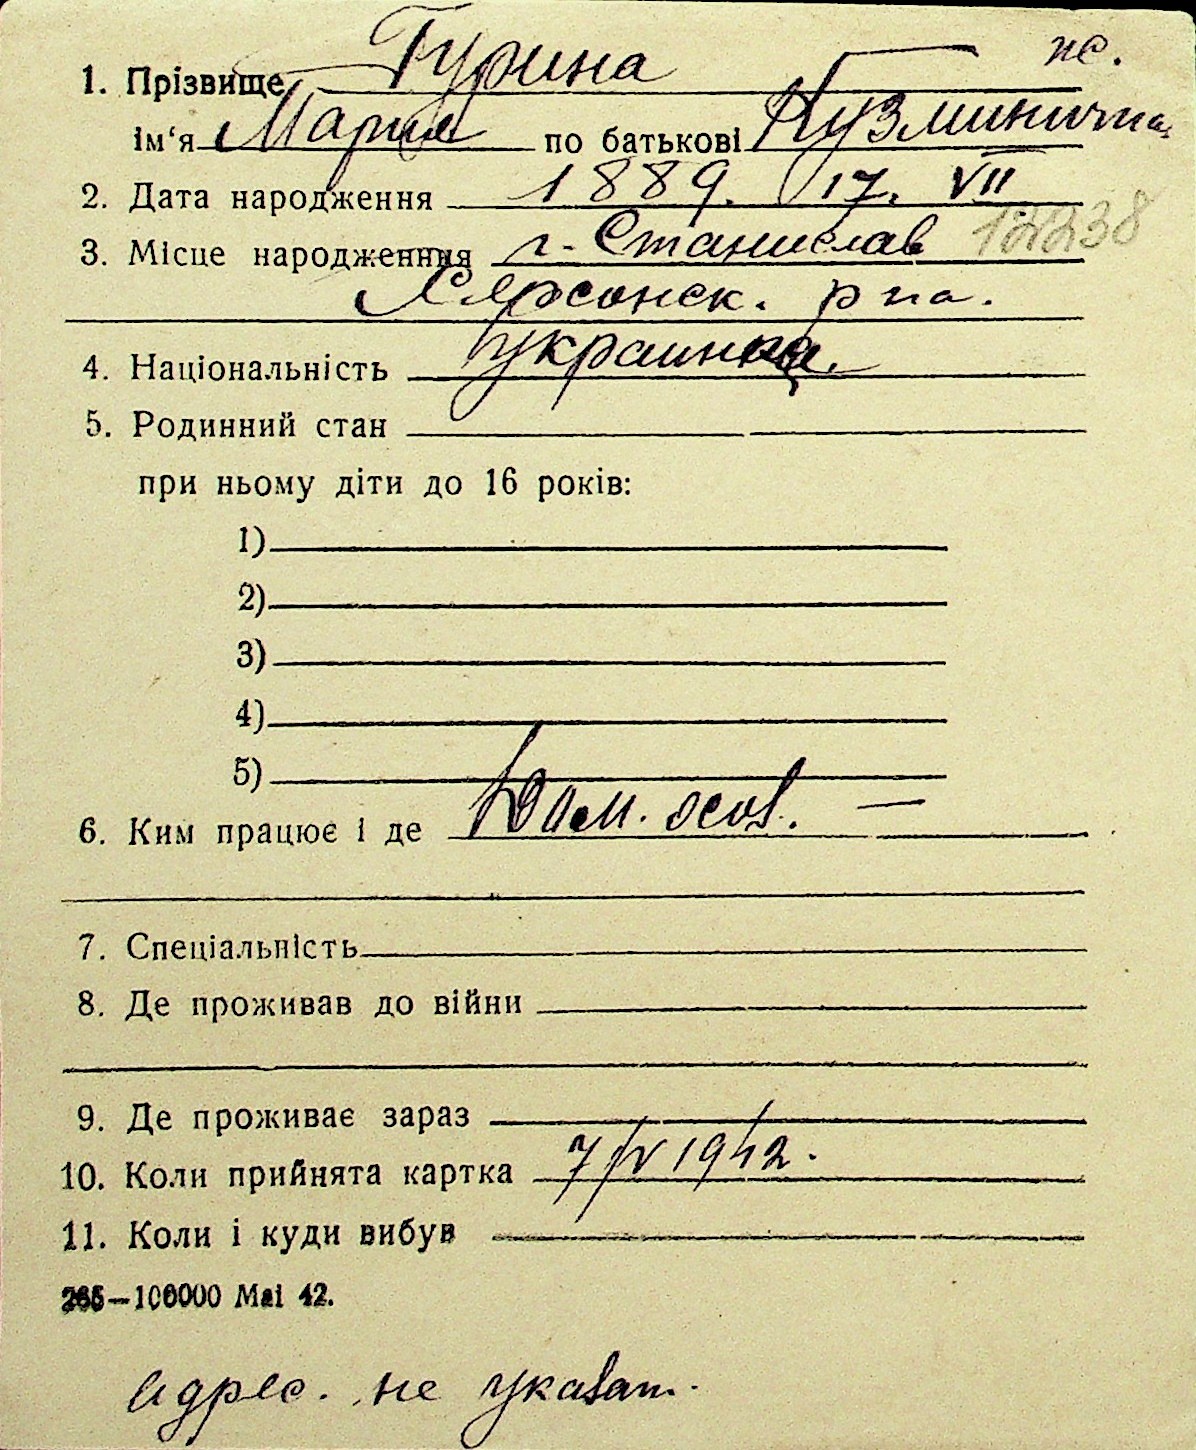 1. Прізвище Гурина ж.
ім‘я Мария по батькові Кузминична
2. Дата народження 1889. 17. VII
3. Місце народження г. Станислав 12238
Херсонск. р на.
4. Національність украинка.
5. Родинний стан
при ньому діти до 16 років:
1)
2)
3)
4)
5)
6. Ким працює і де Дом. особ. —
7. Спеціальність
8. Де проживав до війни
9. Де проживає зараз
10. Коли прийнята картка 7/V 1942.
11. Коли і куди вибув
265—100000 Mai 42.
адрес. не указан.